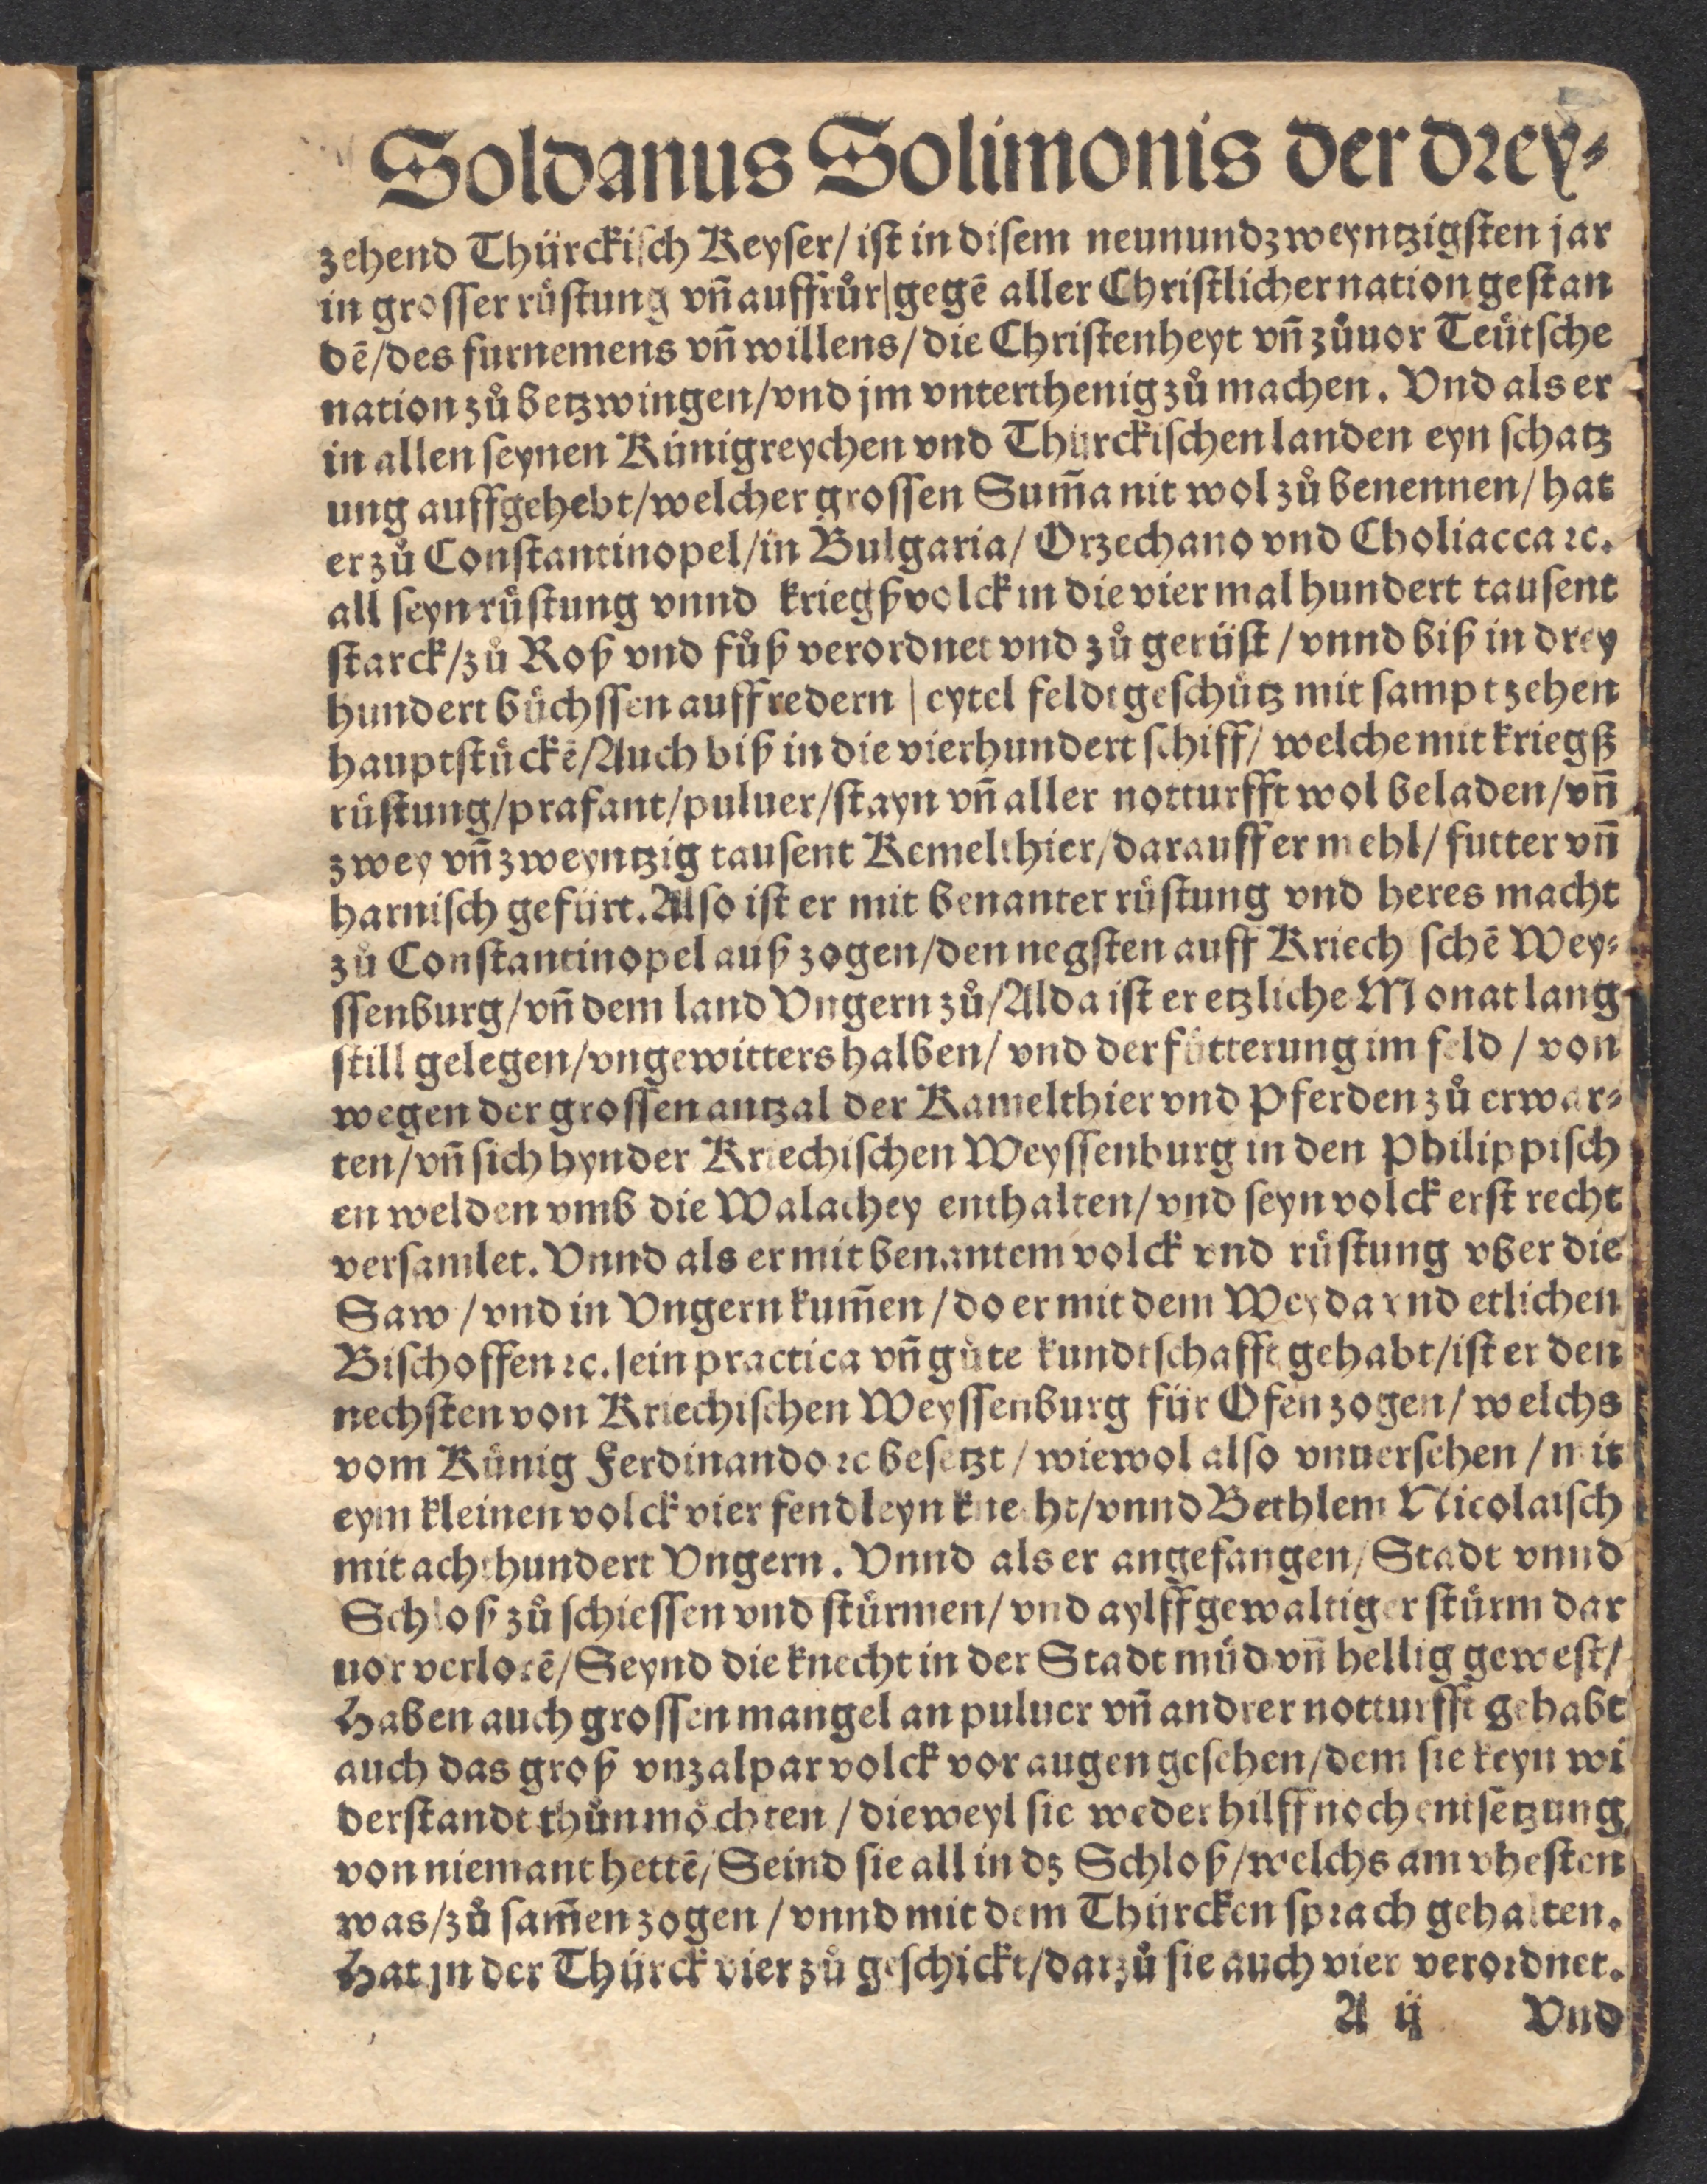 Soldanus Solimonis der drey⸗
zehend Thürckiſch Keyſer/ iſt in diſem neunundzweyntzigſten jar
in groſſer rüſtung vñ auffrůr/gegē aller Chriſtlicher nation geſtan
dē/des furnemens vñ willens/die Chriſtenheyt vñ zůuor Teütſche
nation zů betzwingen/vnd jm vnterthenig zů machen. Vnd als er
in allen ſeynen Künigreychen vnd Thürckiſchen landen eyn ſchatz
ung auffgehebt/welcher groſſen Sum̃a nit wol zů benennen/hat
er zů Conſtantinopel/in Bulgaria/ Orzechano vnd Choliacca ꝛc.
all ſeyn rüſtung vnnd kriegßvolck in die vier mal hundert tauſent
ſtarck/zů Roß vnd fůß verordnet vnd zů gerüſt/vnnd biß in drey
hundert büchſſen auff redern/eytel feldtgeſchütz mit ſampt zehen
hauptſtückē/Auch biß in die vierhundert ſchiff/welche mit kriegß
rüſtung/prafant/puluer/ſtayn vñ aller notturfft wol beladen/vñ
zwey vñ zweyntzig tauſent Kemelthier/darauff er mehl/futter vñ
harniſch gefürt. Alſo iſt er mit benanter rüſtung vnd heres macht
zů Conſtantinopel auß zogen/den negſten auff Kriechiſchē Wey⸗
ſſenburg/vñ dem land Vngern zů/Alda iſt er etzliche Monat lang
ſtill gelegen/vngewitters halben/vnd der fütterung im feld/von
wegen der groſſen antzal der Kamelthier vnd Pferden zů erwar⸗
ten/vñ ſich hynder Kriechiſchen Weyſſenburg in den Philippiſch
en welden vmb die Walachey enthalten/vnd ſeyn volck erſt recht
verſamlet. Vnnd als er mit benantem volck vnd rüſtung vber die
Saw/vnd in Vngern kum̃en/do er mit dem Weyda vnd etlichen
Biſchoffen ꝛc. ſein practica vñ gůte kundtſchafft gehabt/iſt er den
nechſten von Kriechiſchen Weyſſenburg für Ofen zogen/welchs
vom Künig Ferdinando ꝛc beſetzt/wiewol alſo vnuerſehen/mit
eym kleinen volck vier fendleyn knecht/vnnd Bethlem Nicolaiſch
mit achthundert Vngern. Vnnd als er angefangen/Stadt vnnd
Schloß zů ſchieſſen vnd ſtürmen/vnd aylff gewaltiger ſtürm dar
uor verlorē/Seynd die knecht in der Stadt müd vñ hellig geweſt/
Haben auch groſſen mangel an puluer vñ andrer notturfft gehabt
auch das groß vnzalpar volck vor augen geſehen/dem ſie keyn wi
derſtandt thůn möchten/dieweyl ſie weder hilff noch entſetzung
von niemant hettē/Seind ſie all in dz Schloß/welchs am vheſten
was/zů ſam̃en zogen/vnnd mit dem Thürcken ſprach gehalten.
Hat jn der Thürck vier zů geſchickt/darzů ſie auch vier verordnet.
A ij Vnd